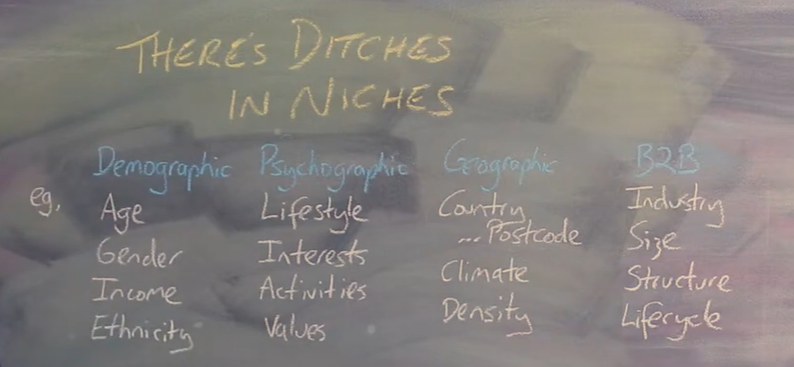 THERE'S DITCHES
IN NICHES
Demographic Psychographic Geographic B2B
eg. Age Lifestyle Country Industry
Gender Interests ... Postcode Size
Income Activities Climate Structure
Ethnicity Values Density Lifecycle